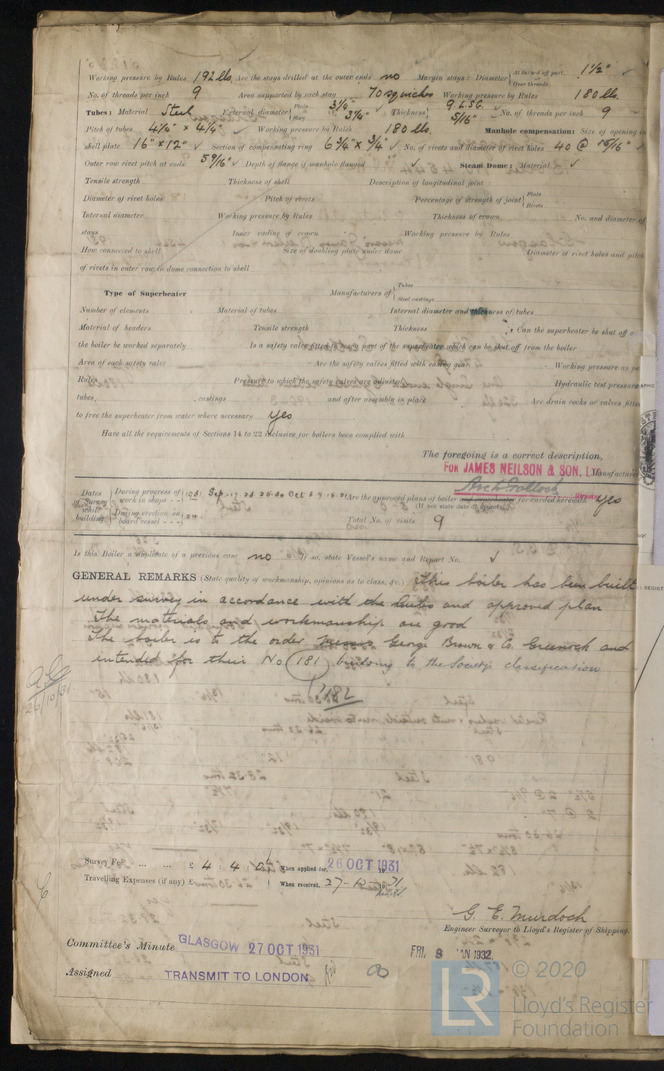 Working pressure by Rules 192 lbs. Are the stays drilled at the outer ends no Margin stays: Diameter { At turned off part, Over threads 1 1/2"
No. of threads per inch 9 Area supported by each stay 70 sq inches Working pressure by Rules 180 lbs.
Tubes: Material Steel External diameter { Plain Stay 3 1/4" 3 1/4" Thickness { 9 L.S.G. 5/16" No. of threads per inch 9
Pitch of tubes 4 1/2" × 4 1/2" Working pressure by Rules 180 lbs. Manhole compensation: Size of opening in
shell plate 16" × 12" Section of compensating ring No. of rivets and diameter of rivet holes 40 @ 15/16"
Outer row rivet pitch at ends Depth of flange if manhole flanged Steam Dome: Material
Tensile strength Thickness of shell Description of longitudinal joint
Diameter of rivet holes Pitch of rivets Percentage of strength of joint { Plate Rivets
Internal diameter Working pressure by Rules Thickness of crown No. and diameter of
stays Inner radius of crown Working pressure by Rules
How connected to shell Size of doubling plate under dome Diameter of rivet holes and pitch
of rivets in outer row in dome connection to shell
Type of Superheater Manufacturers of { Tubes Steel castings
Number of elements Material of tubes Internal diameter and thickness of tubes
Material of headers Tensile strength Thickness Can the superheater be shut off
the boiler be worked separately Is a safety valve fitted to every part of the superheater which can be shut off from the boiler
Area of each safety valve Are the safety valves fitted with easing gear Working pressure as per
Rules Pressure to which the safety valves are adjusted Hydraulic test pressure
tubes, castings and after assembly in place Are drain cocks or valves fitted
to free the superheater from water where necessary yes
Have all the requirements of Sections 14 to 22 inclusive for boilers been complied with
The foregoing is a correct description,
FOR JAMES NEILSON & SON, L Manufacturer
Arch Pollock
Dates of Survey while building { During progress of work in shops - - } 1931 Sep. Oct Are the approved plans of boiler and superheater forwarded herewith yes
{ During erection on board vessel - - - } (If not state date of approval)
Total No. of visits 9
Is this Boiler a duplicate of a previous case no If so, state Vessel's name and Report No.
GENERAL REMARKS (State quality of workmanship, opinions as to class, &c.) This boiler has been built
under survey in accordance with the Rules and approved plan
The materials and workmanship are good
The boiler is to the order Messrs George Brown & Co. Greenock and
intended for their No 181 building to the Society's classification
182
26/10/31
Survey Fee ... ... £ 4 : 4 When applied for, 26 OCT 1931
Travelling Expenses (if any) £ When received,
G. E. Murdoch
Engineer Surveyor to Lloyd's Register of Shipping.
Committee's Minute GLASGOW 27 OCT 1931
FRI. 8 JAN 1932
Assigned TRANSMIT TO LONDON
LR © 2020
Lloyd's Register
Foundation